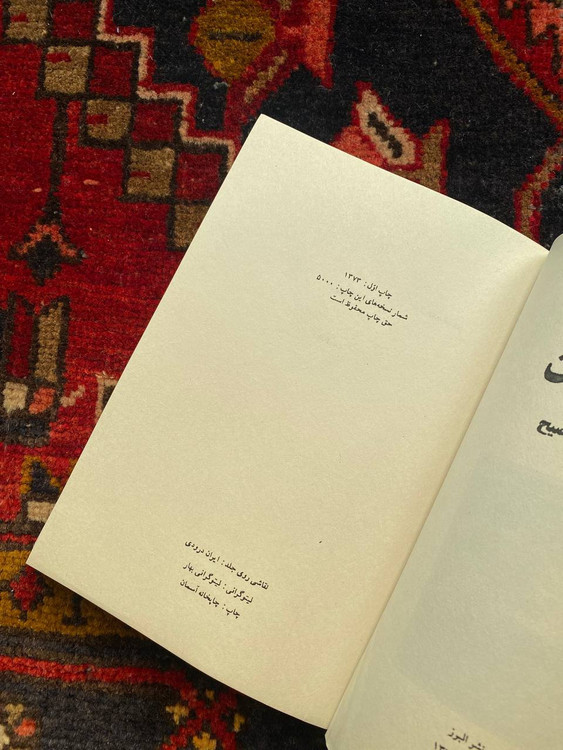 چاپ اوّل: ۱۳۷۳
شمار نسخه‌های این چاپ: ۵۰۰۰
حق چاپ محفوظ است
نقاشی روی جلد: ایران درودی
لیتوگرافی: لیتوگرافی بهار
چاپ: چاپخانه آسمان
نشر البرز